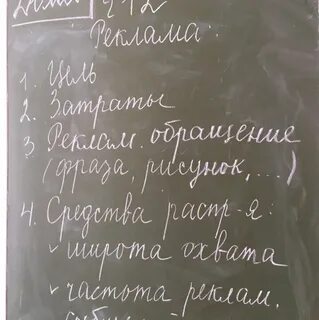 §12
Реклама
1. Цель
2. Затраты
3. Реклам. обращение
(фраза, рисунок,...)
4. Средства распр-я:
✓ широта охвата
✓ частота реклам.